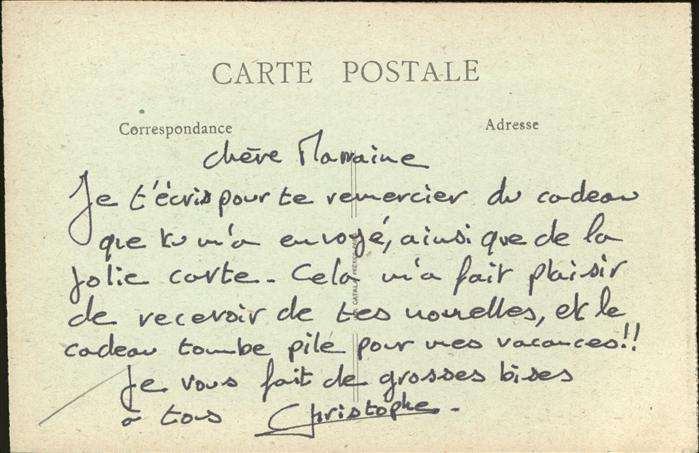 CARTE POSTALE
Correspondance
Adresse
Chère Marraine
Je t'écris pour te remercier du cadeau
que tu m'a envoyé, ainsi que de la
jolie carte. Cela m'a fait plaisir
de recevoir de tes nouvelles, et le
cadeau tombe pile pour mes vacances!!
Je vous fait de grosses bises
a tous Christophe.